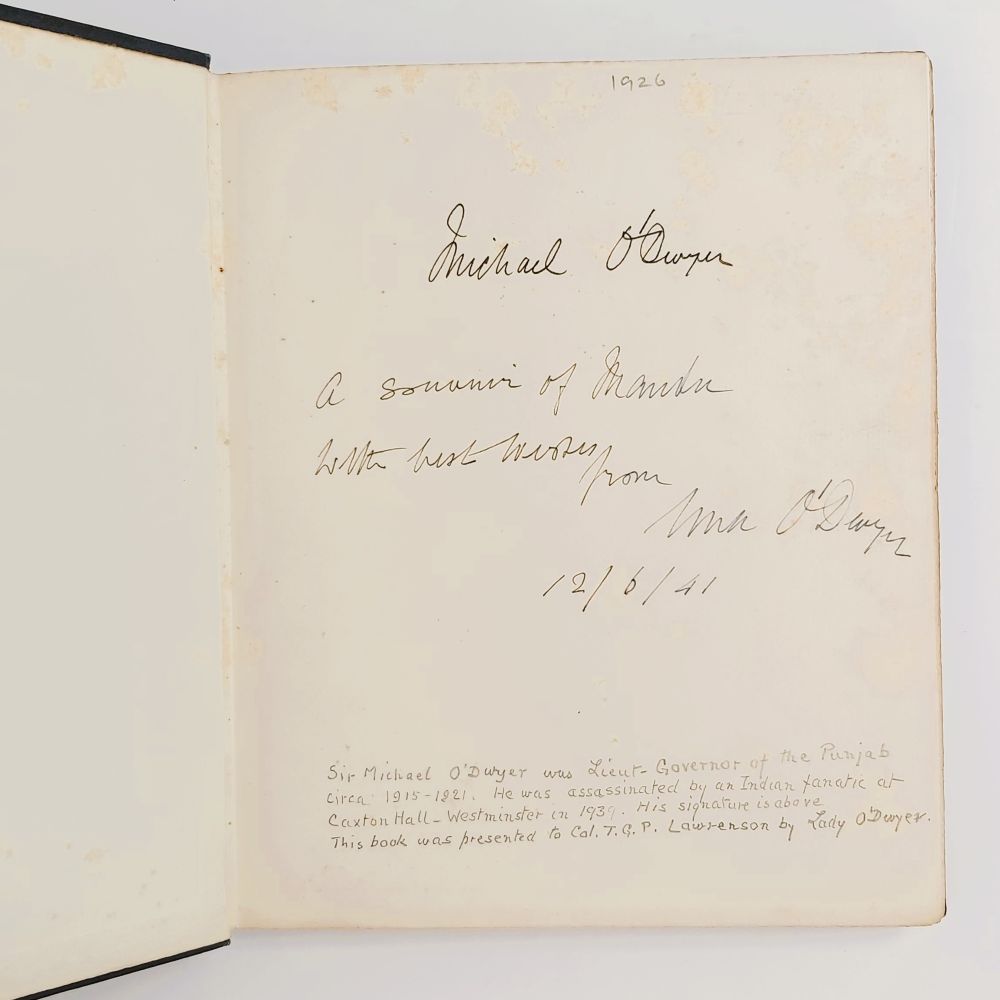 1926
Michael O'Dwyer
A souvenir of Mandu
With best wishes
from
Una O'Dwyer
12/6/41
Sir Michael O'Dwyer was Lieut-Governor of the Punjab
circa 1915-1921. He was assassinated by an Indian fanatic at
Caxton Hall - Westminster in 1939. His signature is above
This book was presented to Col. T. G. P. Lawrenson by Lady O'Dwyer.